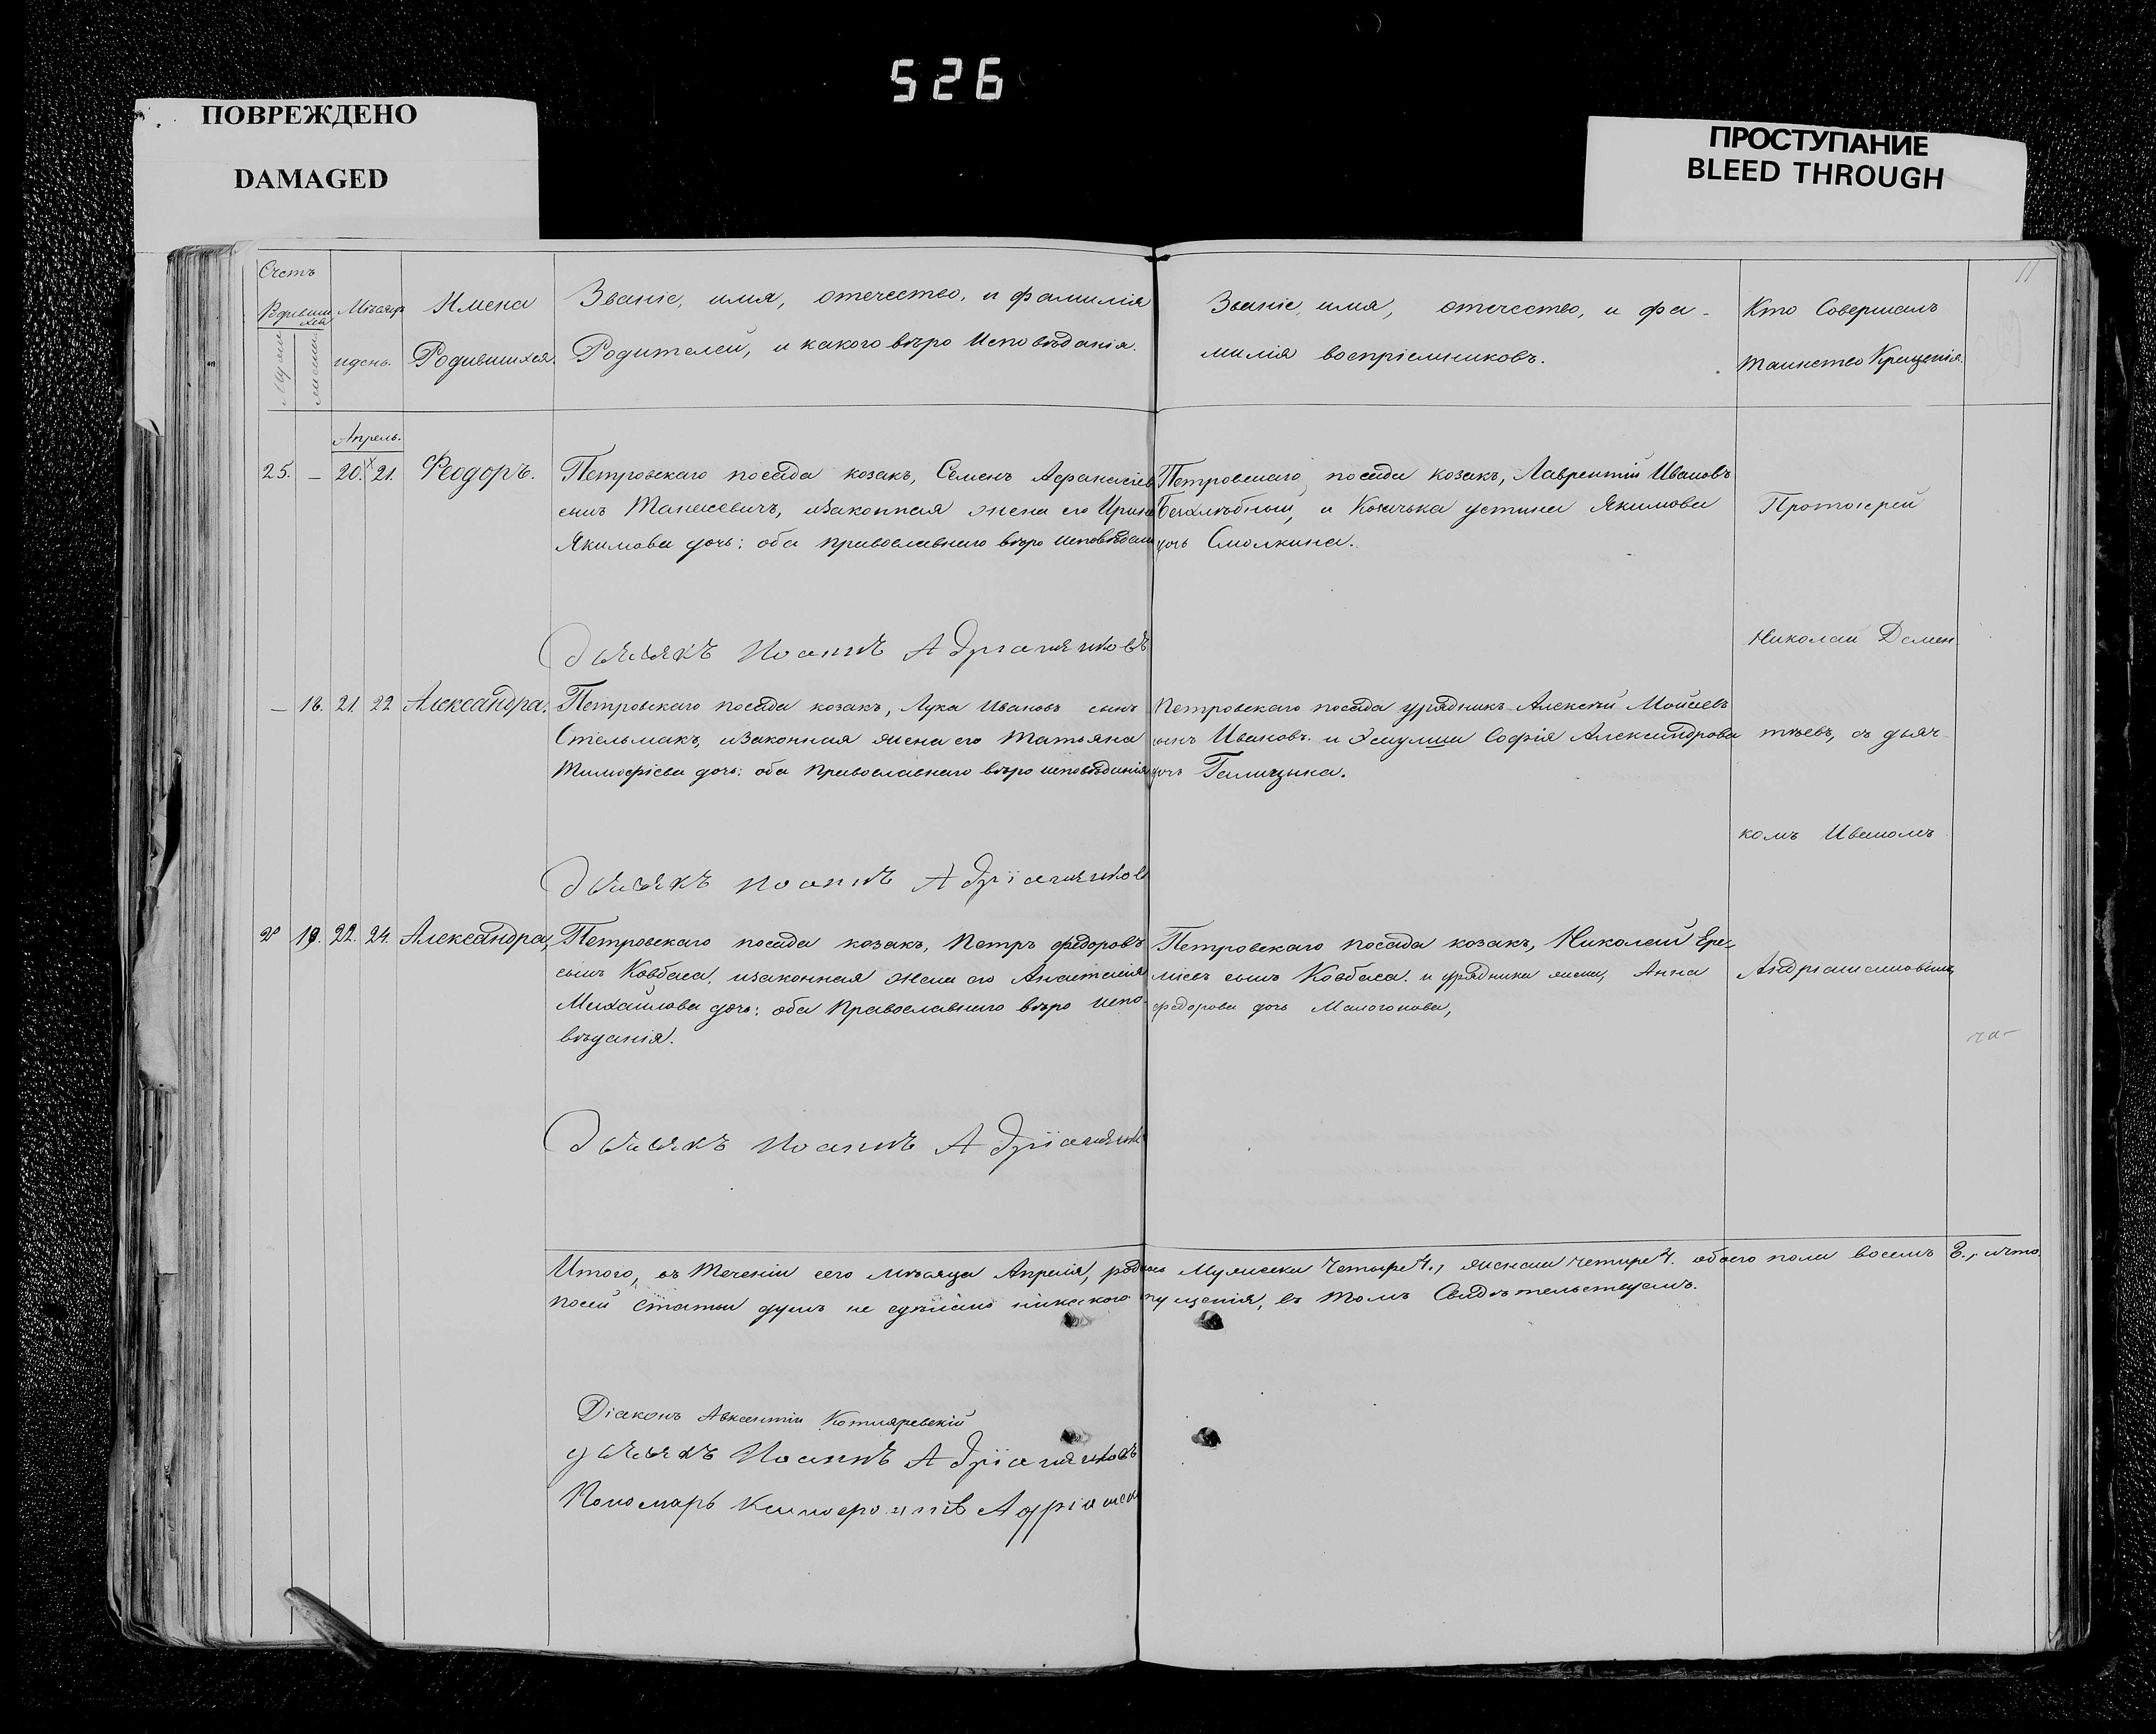 526
ПОВРЕЖДЕНО
DAMAGED
ПРОСТУПАНИЕ
BLEED THROUGH
11
Счетъ
Родивши
хся
Мѣсяцъ
идень.
Имена
Родившихся.
Званіе, имя, отечество, и фамилія
Родителей, и какого вѣро Исповѣданія.
Званіе, имя, отечество, и фа-
милія воспріемниковъ.
Кто Совершалъ
Таинство Крещенія.
Апрель.
25. — 20. 21. Феодоръ.
Петровскаго посада козакъ, Семенъ Афанасіевъ
сынъ Танасевичъ, изаконная жена его Ирина
Якимова дочь: оба православнаго вѣро исповѣдані
Петровскаго посада козакъ, Лаврентій Ивановъ
Безхлѣбный, и Козачька устина Якимова
дочь Смолкина.
Дьячекъ Иоаннъ Адріаняновъ
— 18. 21. 22 Александра.
Петровскаго посада козакъ, Лука Ивановъ сынъ
Стельмакъ, изаконная жена его Татьяна
Тимофіева дочь: оба православнаго вѣро исповѣданія
Петровскаго посада урядникъ Алексѣй Мойсіевъ
сынъ Ивановъ. и Эсаулша Софія Александрова
дочь Галицына.
Дьячекъ Иоаннъ Адріанянов
19. 22. 24. Александра,
Петровскаго посада козакъ, Петръ федоровъ
сынъ Ковбаса, изаконная жена его Анастасія
Михайлова дочь: оба Православнаго вѣро испо-
вѣданія.
Петровскаго посада козакъ, Николай Ере-
міевъ сынъ Ковбаса. и урядника жена, Анна
федорова дочь
Дьячекъ Иоаннъ Адріанян
Протоіерей
Николай Демен
тѣевъ, съ дьяч
комъ Иваномъ
Андріаниновымъ
Итого, въ Теченіи сего мѣсяца Апреля, родилось Мужеска Четыре 4., женска четыре 4. обоего пола восемь 8., ичто
посей Статьи душъ не сдѣлано никакого пущенія, въ томъ Свидѣтельствуемъ.
Діаконъ Авксентій Котляревскій
дьячекъ Иоаннъ Адріаняновъ
Пономарь Адріанов